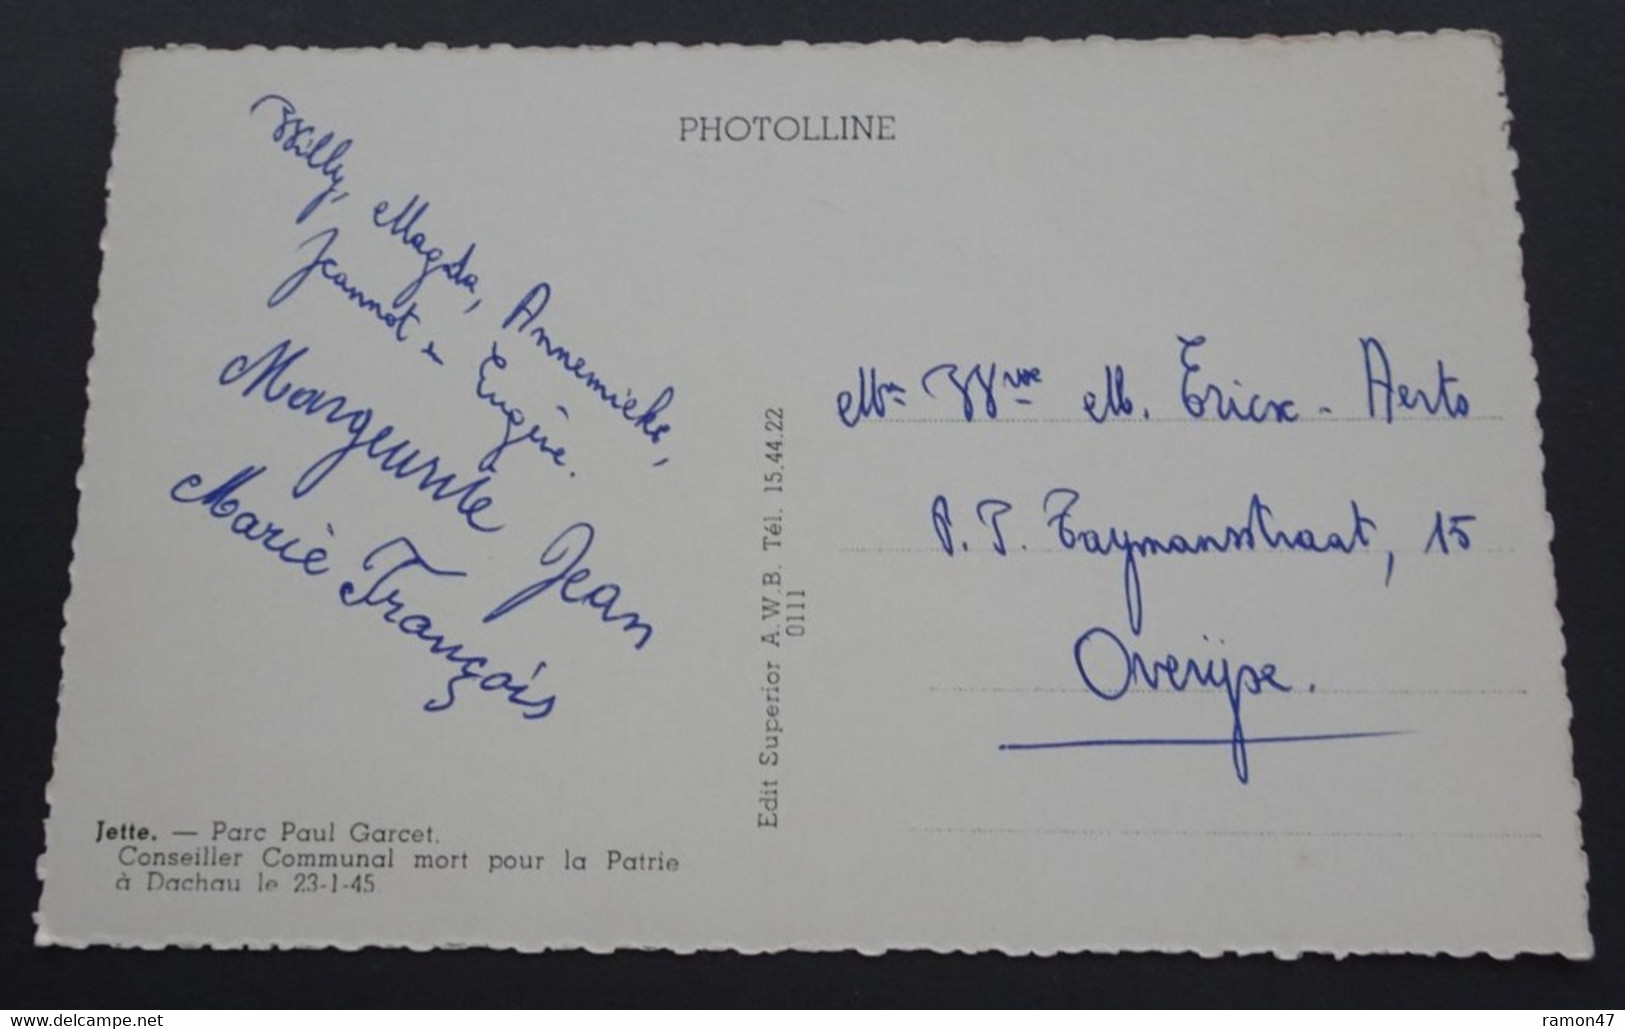 PHOTOLLINE
Willy, Magda, Annemieke,
Jeannot en Eugène.
Marguerite Jean
Marie François
Jette. — Parc Paul Garcet.
Conseiller Communal mort pour la Patrie
à Dachau le 23-1-45
Edit Superior A.W.B. Tél. 15.44.22
0111
Mm Wwe M. Ericx - Aerts
P. T. Taymansstraat, 15
Overijse.
www.delcampe.net
ramon47